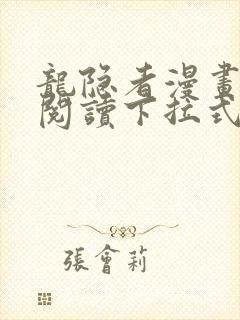 龍隐者漫畫
閱讀下拉式
張會莉